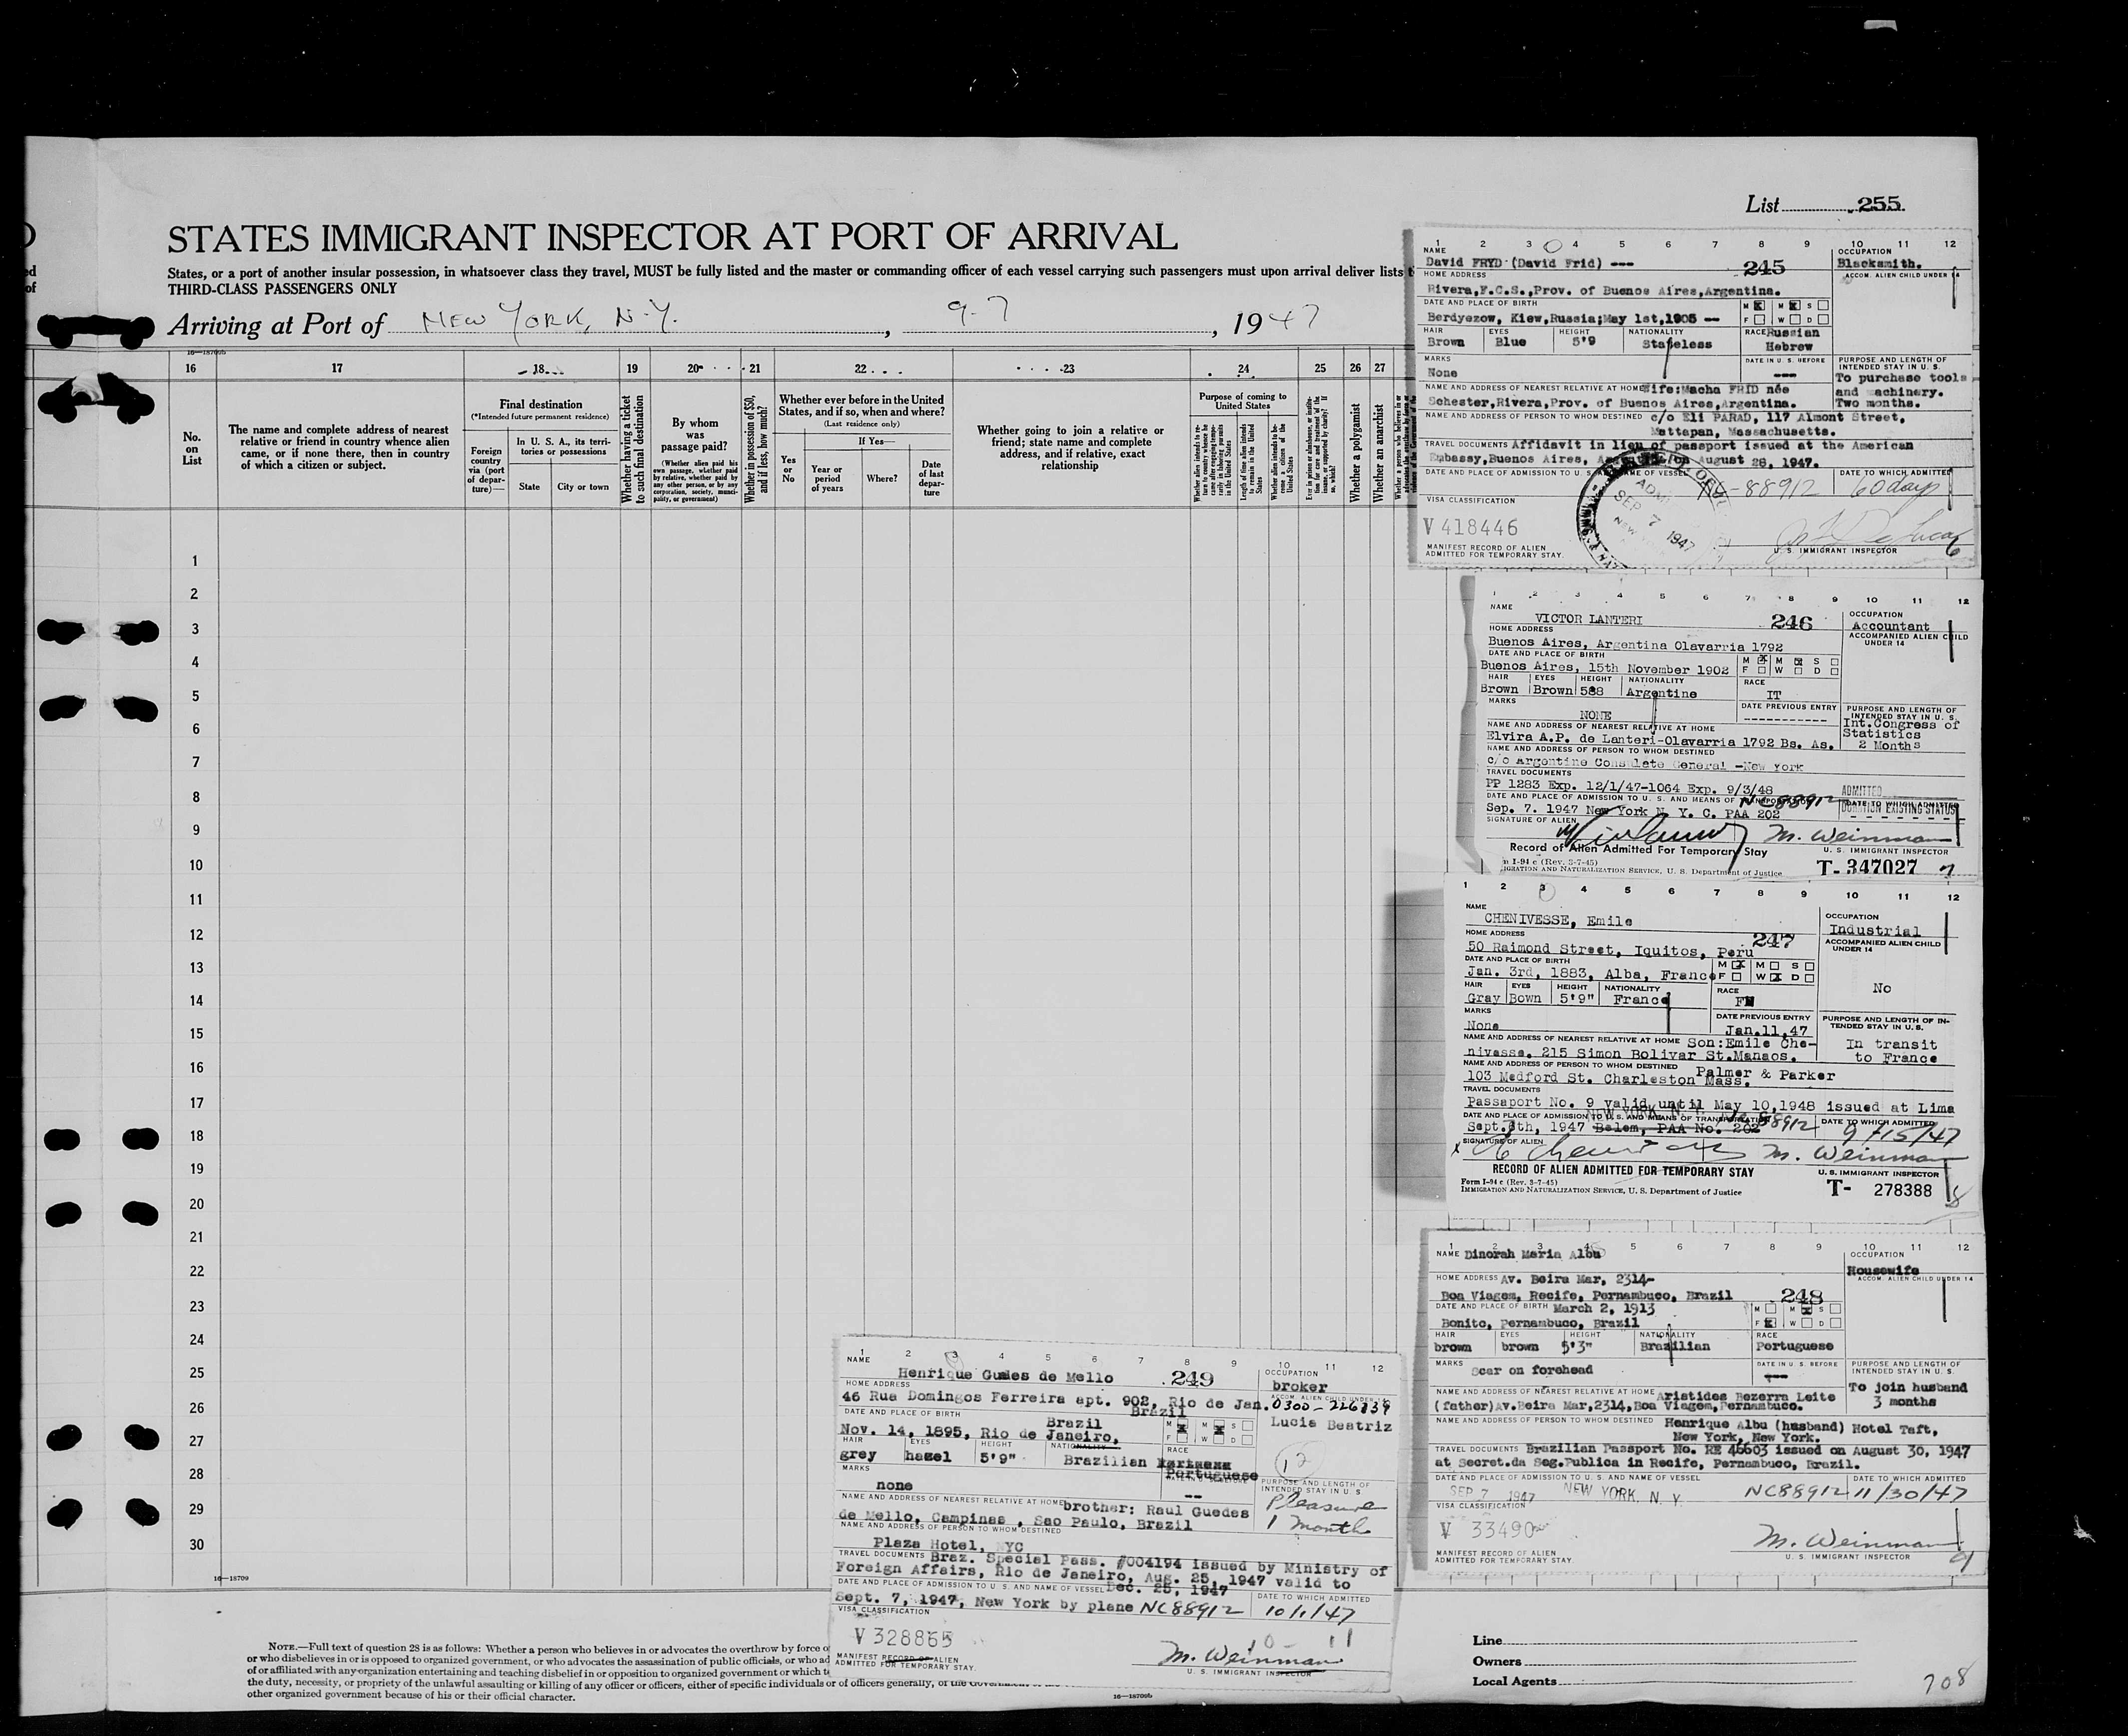 List 255
STATES IMMIGRANT INSPECTOR AT PORT OF ARRIVAL
States, or a port of another insular possession, in whatsoever class they travel, MUST be fully listed and the master or commanding officer of each vessel carrying such passengers must upon arrival deliver lists
THIRD-CLASS PASSENGERS ONLY
Arriving at Port of NEW YORK, N.Y. , 9-7 , 1947
16—18709b
16 17 18 19 20 21 22 23 24 25 26 27
No. on List
The name and complete address of nearest
relative or friend in country whence alien
came, or if none there, then in country
of which a citizen or subject.
Final destination
(*Intended future permanent residence)
Foreign
country
via (port
of depar-
ture)—
In U. S. A., its terri-
tories or possessions
State
City or town
Whether having a ticket
to such final destination
By whom
was
passage paid?
(Whether alien paid his
own passage, whether paid
by relative, whether paid by
any other person, or by any
corporation, society, munici-
pality, or government)
Whether in possession of $50,
and if less, how much?
Whether ever before in the United
States, and if so, when and where?
(Last residence only)
Yes
or
No
If Yes—
Year or
period
of years
Where?
Date
of last
depar-
ture
Whether going to join a relative or
friend; state name and complete
address, and if relative, exact
relationship
Purpose of coming to
United States
Whether alien intends to re-
turn to country whence he
came after engaging tempo-
rarily in laboring pursuits
in the United States
Length of time alien intends
to remain in the United
States
Whether alien intends to be-
come a citizen of the
United States
Ever in prison or almshouse, or institu-
tion for care and treatment of the
insane, or supported by charity? If
so, which?
Whether a polygamist
Whether an anarchist
1
2
3
4
5
6
7
8
9
10
11
12
13
14
15
16
17
18
19
20
21
22
23
24
25
26
27
28
29
30
16—18709
1 2 3 4 5 6 7 8 9 10 11 12
NAME
David FRYD (David Frid) --- 245
OCCUPATION
Blacksmith.
HOME ADDRESS
ACCOM. ALIEN CHILD UNDER 14
Rivera,F.C.S.,Prov. of Buenos Aires,Argentina.
DATE AND PLACE OF BIRTH
M M S
Berdyezow, Kiew,Russia;May 1st,1905 --
F W D
HAIR EYES HEIGHT NATIONALITY RACE Russian
Brown Blue 5'9 Stateless Hebrew
MARKS DATE IN U. S. BEFORE
None ---
PURPOSE AND LENGTH OF
INTENDED STAY IN U. S.
To purchase tools
and machinery.
Two months.
NAME AND ADDRESS OF NEAREST RELATIVE AT HOME Wife:Macha FRID née
Schester,Rivera,Prov. of Buenos Aires,Argentina.
NAME AND ADDRESS OF PERSON TO WHOM DESTINED c/o Eli PARAD, 117 Almont Street,
Mattapan, Massachusetts.
TRAVEL DOCUMENTS Affidavit in lieu of passport issued at the American
Embassy,Buenos Aires, Argentina,on August 28, 1947.
DATE AND PLACE OF ADMISSION TO U. S. AND NAME OF VESSEL DATE TO WHICH ADMITTED
NC-88912 60 days
SEP 7 1947
VISA CLASSIFICATION
V 418446
MANIFEST RECORD OF ALIEN
ADMITTED FOR TEMPORARY STAY.
U. S. IMMIGRANT INSPECTOR
6
1 2 3 4 5 6 7 8 9 10 11 12
NAME
VICTOR LANTERI 246
OCCUPATION
Accountant
HOME ADDRESS
ACCOMPANIED ALIEN CHILD
UNDER 14
Buenos Aires, Argentina Olavarria 1792
DATE AND PLACE OF BIRTH
M M S
Buenos Aires, 15th November 1902
F W D
HAIR EYES HEIGHT NATIONALITY RACE
Brown Brown 588 Argentine IT
MARKS DATE PREVIOUS ENTRY
NONE ------------
PURPOSE AND LENGTH OF
INTENDED STAY IN U. S.
Int.Congress of
Statistics
2 Months
NAME AND ADDRESS OF NEAREST RELATIVE AT HOME
Elvira A.P. de Lanteri-Olavarria 1792 Bs. As.
NAME AND ADDRESS OF PERSON TO WHOM DESTINED
c/o Argentine Consulate General -New York
TRAVEL DOCUMENTS
PP 1283 Exp. 12/1/47-1064 Exp. 9/3/48
ADMITTED
DURATION EXISTING STATUS
DATE AND PLACE OF ADMISSION TO U. S. AND MEANS OF TRANSPORTATION NC88912 DATE TO WHICH ADMITTED
Sep. 7. 1947 New York N. Y. C. PAA 202
SIGNATURE OF ALIEN
M. Weinman
Record of Alien Admitted For Temporary Stay
U. S. IMMIGRANT INSPECTOR
m I-94 c (Rev. 3-7-45)
IGRATION AND NATURALIZATION SERVICE, U. S. Department of Justice
T- 347027 7
1 2 3 4 5 6 7 8 9 10 11 12
NAME
CHENIVESSE, Emile 247
OCCUPATION
Industrial
HOME ADDRESS
ACCOMPANIED ALIEN CHILD
UNDER 14
No
50 Raimond Street, Iquitos, Peru
DATE AND PLACE OF BIRTH
M M S
Jan. 3rd, 1883, Alba, France
F W D
HAIR EYES HEIGHT NATIONALITY RACE
Gray Bown 5'9" France
MARKS DATE PREVIOUS ENTRY
None Jan.11,47
PURPOSE AND LENGTH OF IN-
TENDED STAY IN U. S.
In transit
to France
NAME AND ADDRESS OF NEAREST RELATIVE AT HOME Son:Emile Che-
nivesse, 215 Simon Bolivar St.Manaos.
NAME AND ADDRESS OF PERSON TO WHOM DESTINED Palmer & Parker
103 Medford St. Charleston Mass.
TRAVEL DOCUMENTS
Passaport No. 9 valid until May 10,1948 issued at Lima
NEW YORK, N. Y.
DATE AND PLACE OF ADMISSION TO U. S. AND MEANS OF TRANSPORTATION NC88912 DATE TO WHICH ADMITTED
Sept.6th, 1947 Belem, PAA No. 202 9/15/47
SIGNATURE OF ALIEN
M. Weinman
RECORD OF ALIEN ADMITTED FOR TEMPORARY STAY
U. S. IMMIGRANT INSPECTOR
Form I-94 c (Rev. 3-7-45)
IMMIGRATION AND NATURALIZATION SERVICE, U. S. Department of Justice
T- 278388 8
1 2 3 4 5 6 7 8 9 10 11 12
NAME Dinorah Maria Albu
OCCUPATION
Housewife
ACCOM. ALIEN CHILD UNDER 14
HOME ADDRESS Av. Beira Mar, 2314-
Boa Viagem, Recife, Pernambuco, Brazil 248
DATE AND PLACE OF BIRTH March 2, 1913
M M S
Bonito, Pernambuco, Brazil
F W D
HAIR EYES HEIGHT NATIONALITY RACE
brown brown 5'3" Brazilian Portuguese
MARKS DATE IN U. S. BEFORE
Scar on forehead ---
PURPOSE AND LENGTH OF
INTENDED STAY IN U. S.
To join husband
3 months
NAME AND ADDRESS OF NEAREST RELATIVE AT HOME Aristides Bezerra Leite
(father)Av.Beira Mar,2314,Boa Viagem,Pernambuco.
NAME AND ADDRESS OF PERSON TO WHOM DESTINED Henrique Albu (husband) Hotel Taft,
New York, New York.
TRAVEL DOCUMENTS Brazilian Passport No. RE 46603 issued on August 30, 1947
at Secret.da Seg.Publica in Recife, Pernambuco, Brazil.
DATE AND PLACE OF ADMISSION TO U. S. AND NAME OF VESSEL DATE TO WHICH ADMITTED
SEP 7 1947 NEW YORK, N. Y. NC88912 11/30/47
VISA CLASSIFICATION
V 33490
M. Weinman
MANIFEST RECORD OF ALIEN
ADMITTED FOR TEMPORARY STAY.
U. S. IMMIGRANT INSPECTOR
9
1 2 3 4 5 6 7 8 9 10 11 12
NAME
Henrique Guedes de Mello 249
OCCUPATION
broker
HOME ADDRESS
ACCOM. ALIEN CHILD UNDER 14
46 Rua Domingos Ferreira apt. 902, Rio de Jan.
Brazil
0300-226839
Lucia Beatriz
12
DATE AND PLACE OF BIRTH
Brazil
M M S
Nov. 14, 1895, Rio de Janeiro,
F W D
HAIR EYES HEIGHT NATIONALITY RACE
grey hazel 5'9" Brazilian Portuguese
MARKS DATE IN U. S. BEFORE
none --
PURPOSE AND LENGTH OF
INTENDED STAY IN U. S.
Pleasure
1 month
NAME AND ADDRESS OF NEAREST RELATIVE AT HOME brother: Raul Guedes
de Mello, Campinas , Sao Paulo, Brazil
NAME AND ADDRESS OF PERSON TO WHOM DESTINED
Plaza Hotel, NYC
TRAVEL DOCUMENTS Braz. Special Pass. #004194 issued by Ministry of
Foreign Affairs, Rio de Janeiro, Aug. 25, 1947 valid to
DATE AND PLACE OF ADMISSION TO U. S. AND NAME OF VESSEL Dec. 25, 1947 DATE TO WHICH ADMITTED
Sept. 7, 1947, New York by plane NC88912 10/1/47
VISA CLASSIFICATION
V 328865
10- 11
M. Weinman
MANIFEST RECORD OF ALIEN
ADMITTED FOR TEMPORARY STAY.
U. S. IMMIGRANT INSPECTOR
NOTE.—Full text of question 28 is as follows: Whether a person who believes in or advocates the overthrow by force o
or who disbelieves in or is opposed to organized government, or who advocates the assassination of public officials, or who ad
of or affiliated with any organization entertaining and teaching disbelief in or opposition to organized government or which t
the duty, necessity, or propriety of the unlawful assaulting or killing of any officer or officers, either of specific individuals or of officers generally, of the Government
other organized government because of his or their official character.
16—18709b
Line
Owners
Local Agents
708